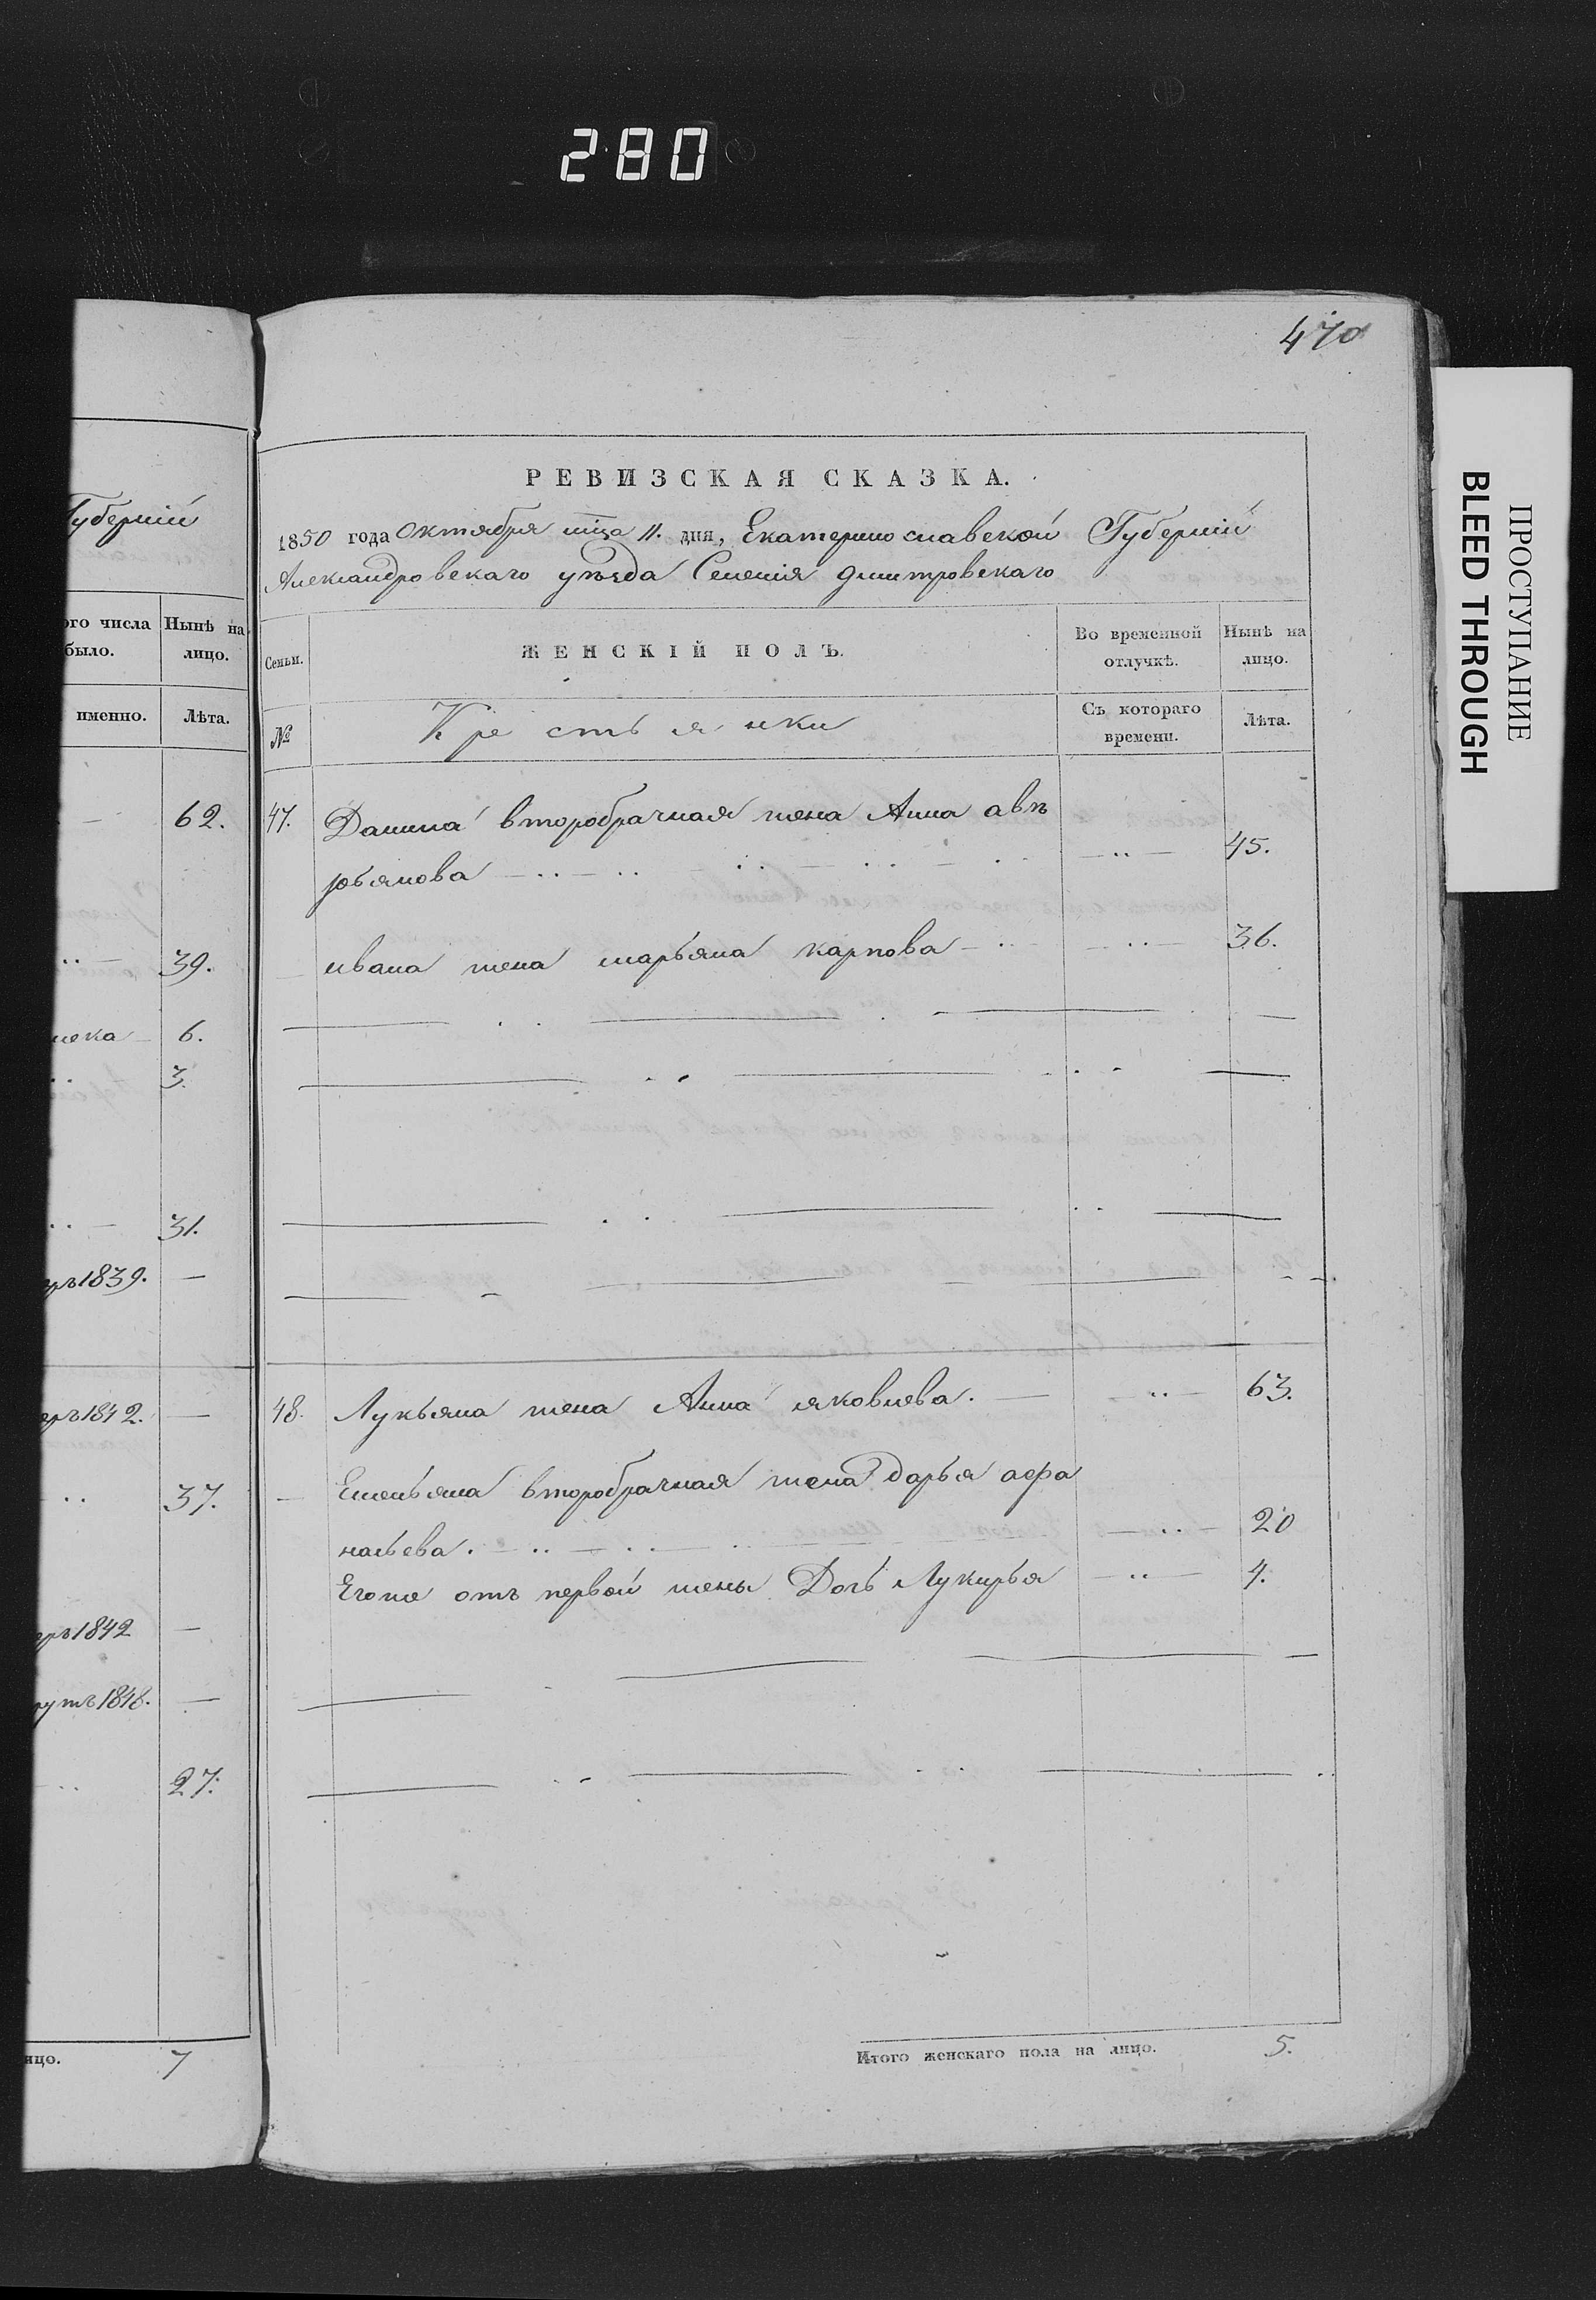 280
470
Губерніи
ого числа
было.
Нынѣ на
лицо.
именно.
Лѣта.
62.
39.
6.
3.
31.
1839. —
1842. —
37.
1842 —
1848. —
27.
ицо. 7
РЕВИЗСКАЯ СКАЗКА.
1850 года Октября мца 11. дня, Екатеринославской Губерніи
Александровскаго уѣзда Селенія дмитровскаго
Семьи.
ЖЕНСКІЙ ПОЛЪ.
Во временной
отлучкѣ.
Нынѣ на
лицо.
№
Крестьянки
Съ котораго
времени.
Лѣта.
47. Данила второбрачная жена Анна авѣ
рьянова 45.
ивана жена марьяна карпова 36.
48. Лукьяна жена Анна яковлева. 63.
Емельяна второбрачная жена дарья афа
насьева. 20
Егоже отъ первой жены Дочь Лукирья 4.
Итого женскаго пола на лицо. 5.
ПРОСТУПАНИЕ
BLEED THROUGH